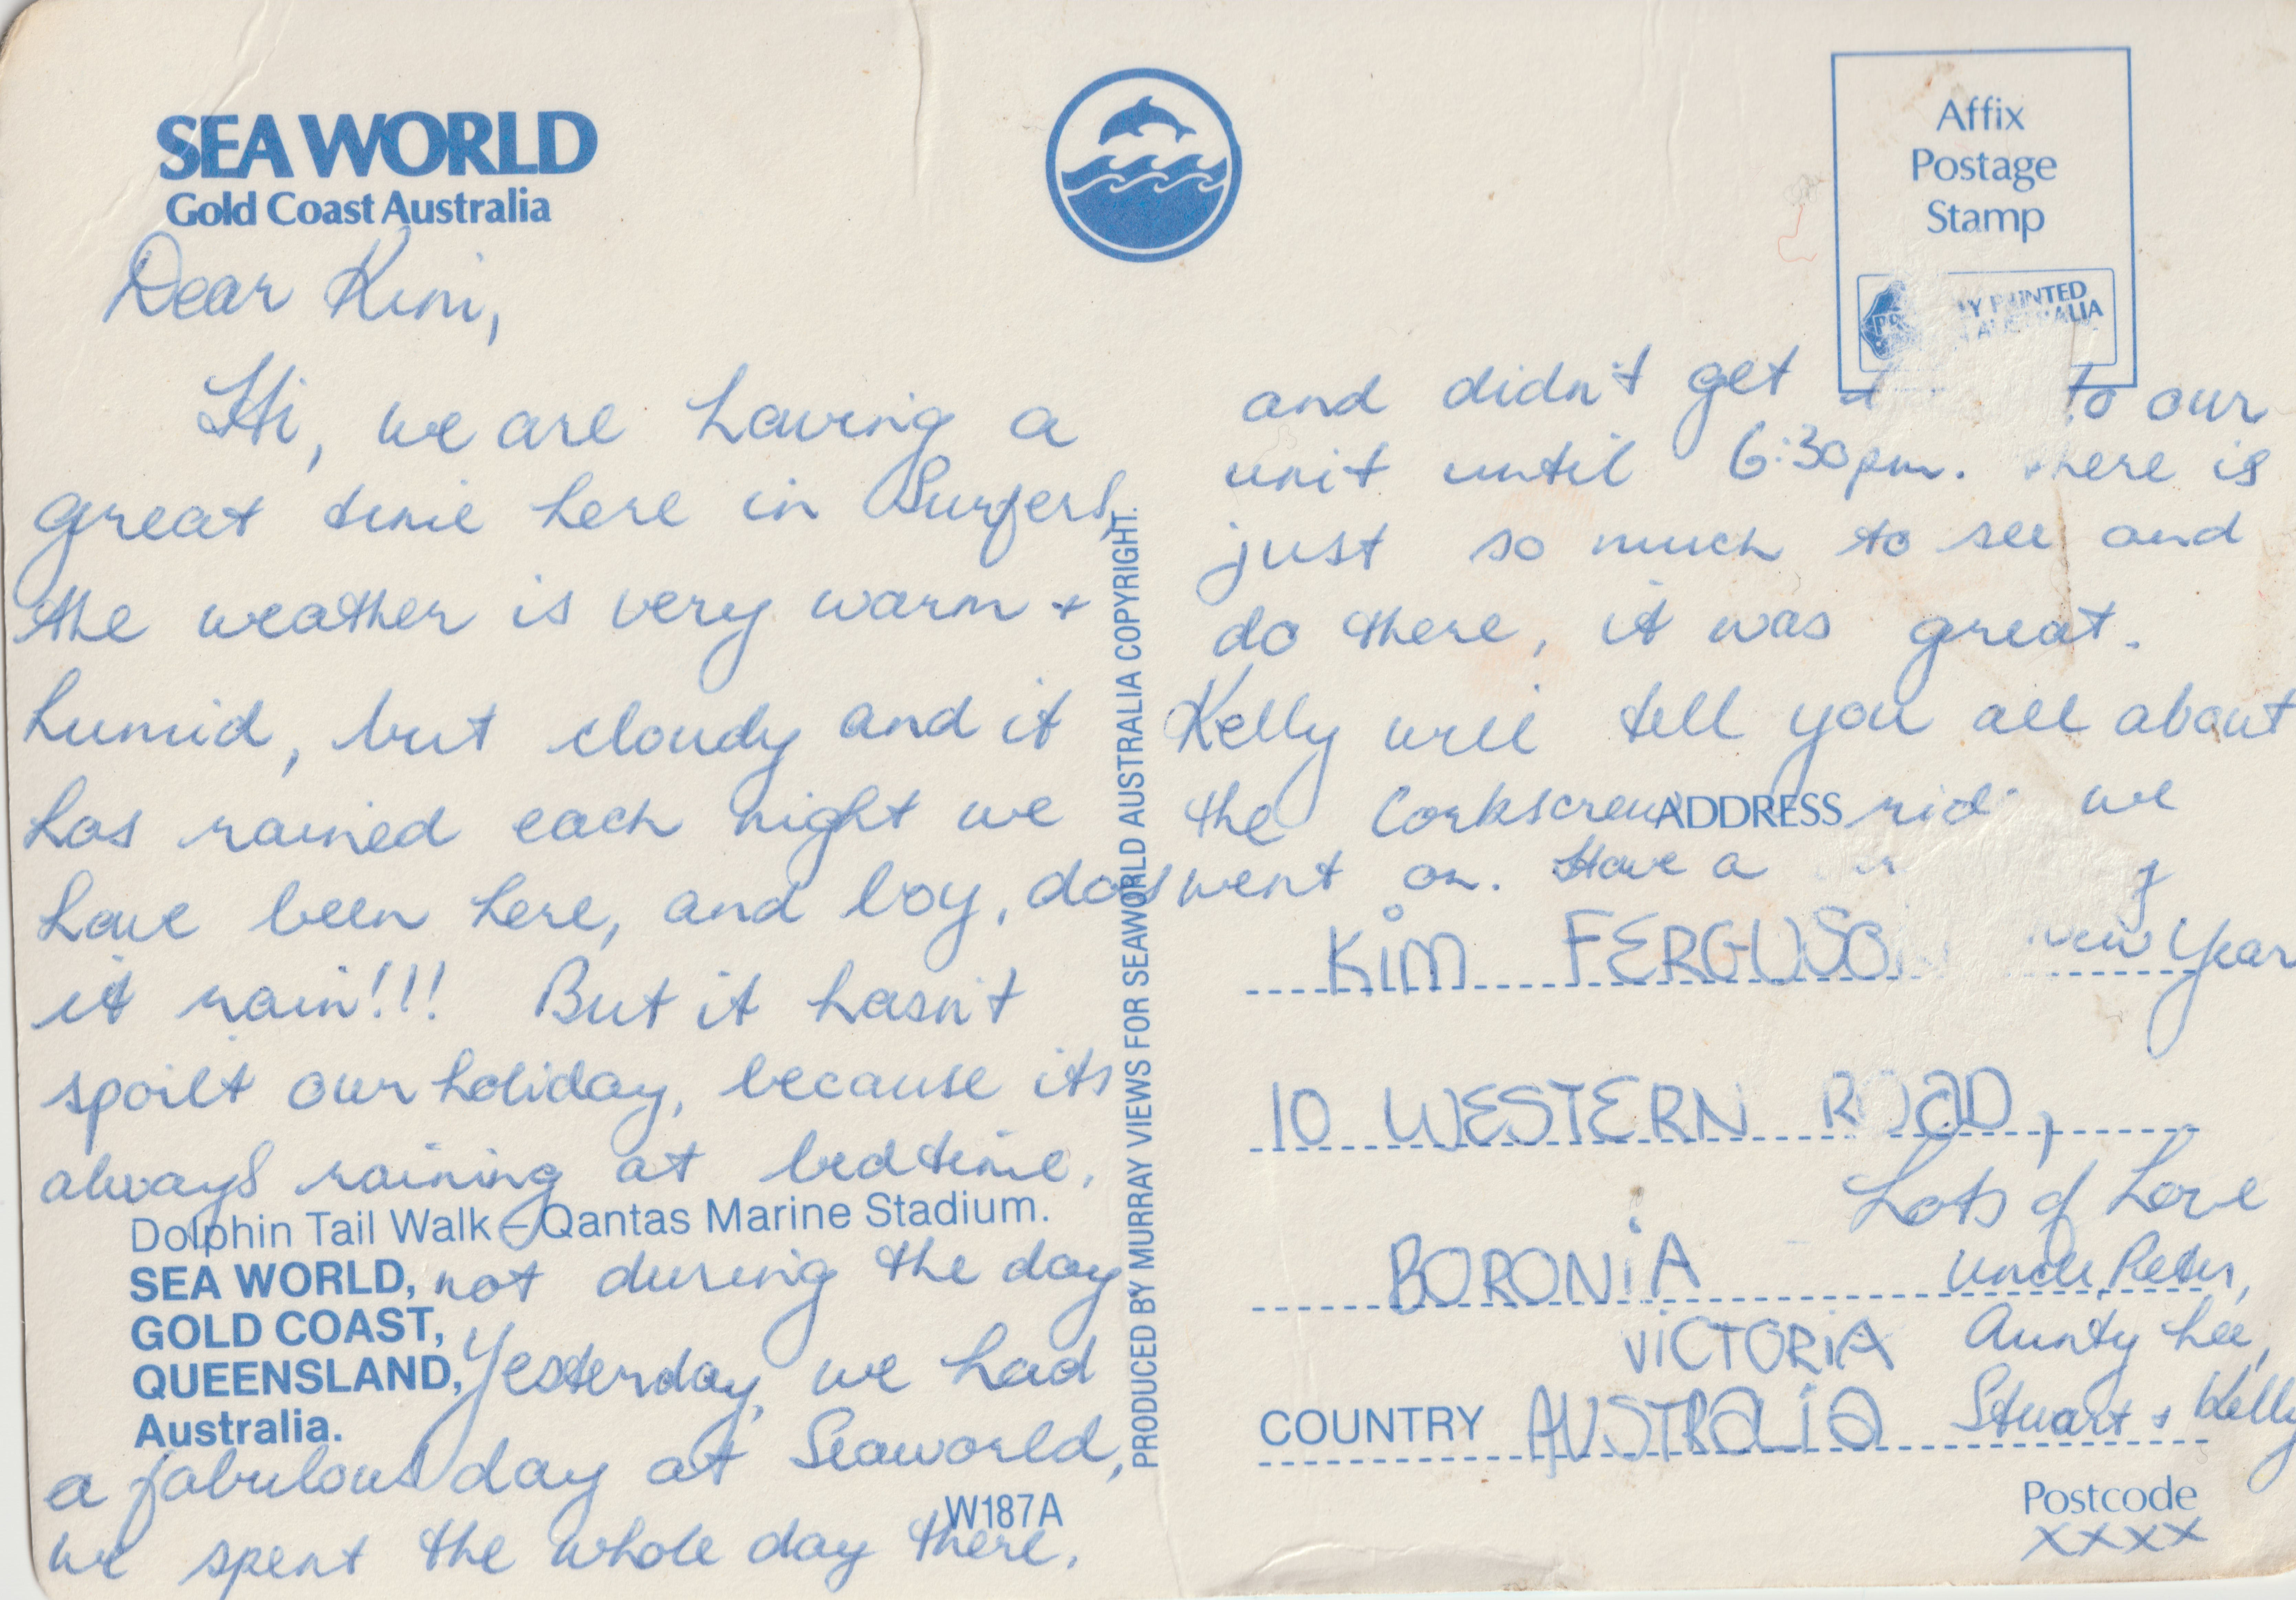 SEA WORLD
Gold Coast Australia
Dear Kim,
Hi, we are having a
great time here in Surfers,
the weather is very warm +
humid, but cloudy and it
has rained each night we
have been here, and boy, does
it rain!!! But it hasn't
spoilt our holiday, because its
always raining at bedtime,
Dolphin Tail Walk – Qantas Marine Stadium.
SEA WORLD,
GOLD COAST,
QUEENSLAND,
Australia.
not during the day
Yesterday, we had
a fabulous day at Seaworld,
W187A
we spent the whole day there,
PRODUCED BY MURRAY VIEWS FOR SEAWORLD AUSTRALIA COPYRIGHT.
Affix
Postage
Stamp
PRINTED
AUSTRALIA
and didn't get to our
unit until 6:30pm. There is
just so much to see and
do there, it was great.
Kelly will tell you all about
the Corkscrew ride we
ADDRESS
went on. Have a
New Year
KIM FERGUSON
10 WESTERN ROAD,
Lots of Love
BORONIA
Uncle Peter,
VICTORIA
Aunty Lee,
COUNTRY AUSTRALIA
Stuart + Kelly
Postcode
XXXX